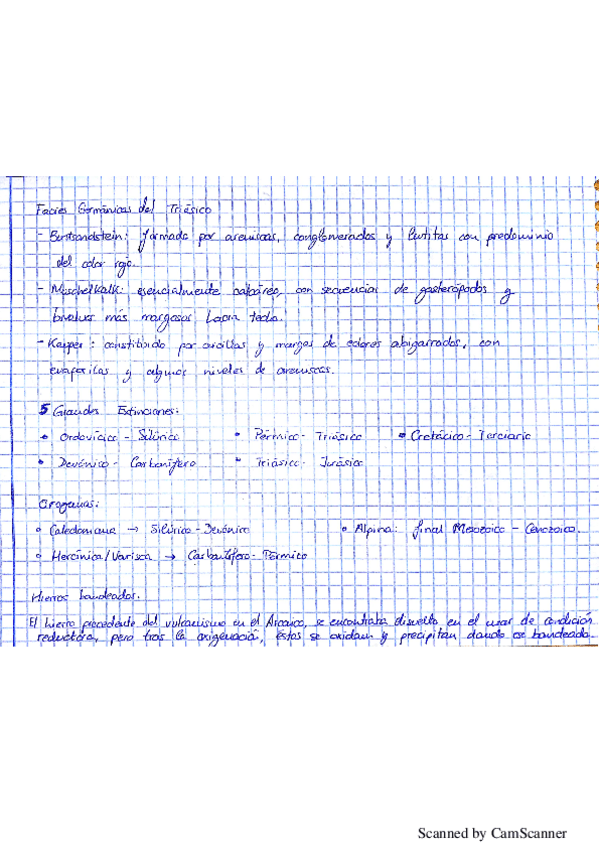 Facies Germánicas del Triásico
- Buntsandstein: formada por areniscas, conglomerados y lutitas con predominio
del color rojo.
- Muschelkalk: esencialmente calcáreo, con secuencias de gasterópodos y
bivalvos más margosos hacia techo.
- Keuper: constituido por arcillas y margas de colores abigarrados, con
evaporitas y algunos niveles de areniscas.
5 Grandes Extinciones:
• Ordovícico - Silúrico • Pérmico - Triásico • Cretácico - Terciario
• Devónico - Carbonífero • Triásico - Jurásico
Orogenias:
• Caledoniana → Silúrico - Devónico • Alpina: final Mesozoico - Cenozoico.
• Hercínica/Varisca → Carbonífero - Pérmico
Hierros bandeados.
El hierro procedente del vulcanismo en el Arcaico, se encontraba disuelto en el mar de condición
reductora, pero tras la oxigenación, éstos se oxidan y precipitan dando ese bandeado.
Scanned by CamScanner